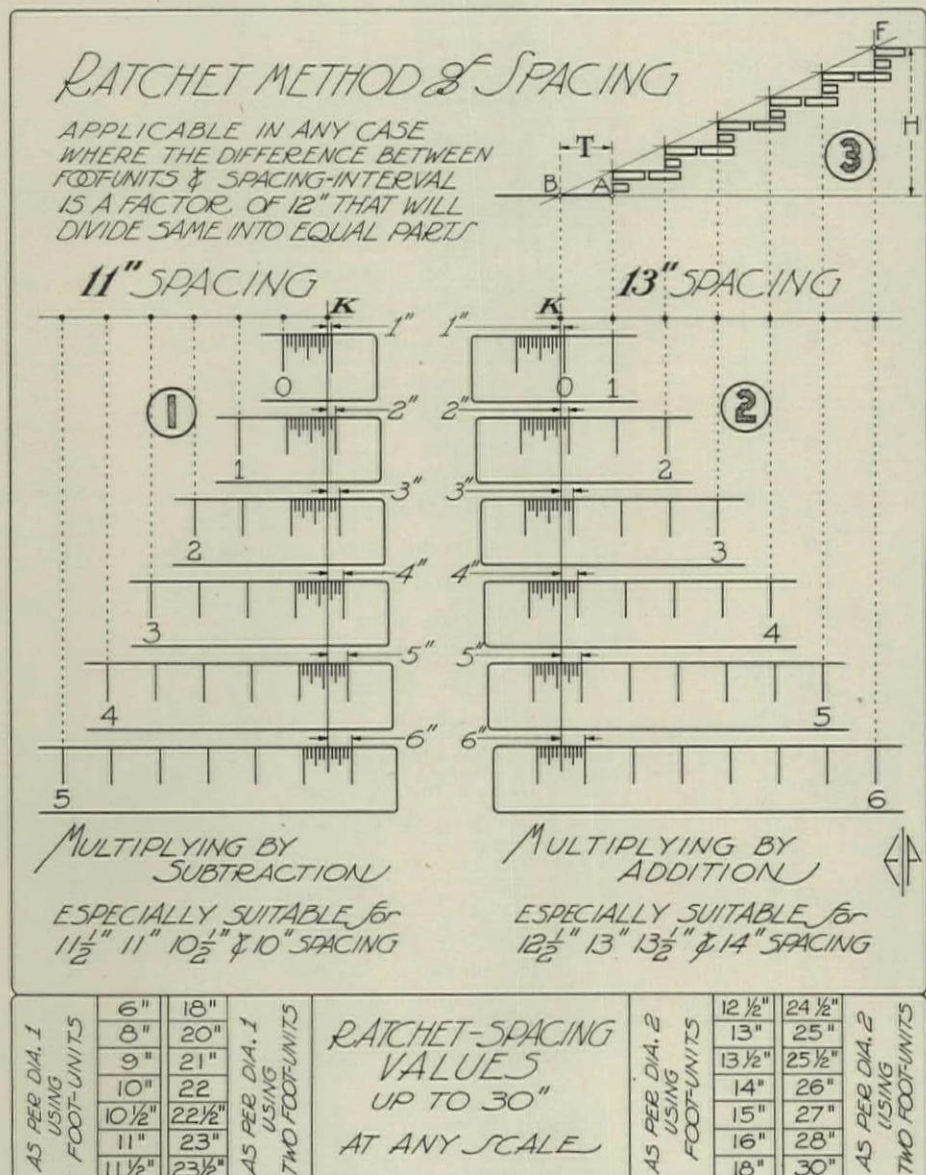 RATCHET METHOD of SPACING
APPLICABLE IN ANY CASE
WHERE THE DIFFERENCE BETWEEN
FOOT-UNITS & SPACING-INTERVAL
IS A FACTOR OF 12" THAT WILL
DIVIDE SAME INTO EQUAL PARTS
F
H
T
3
B
A
11" SPACING
13" SPACING
K
K
1"
1"
0
0
1
1
2
2"
2"
1
2
3"
3"
2
3
4"
4"
3
4
5"
5"
4
5
6"
6"
5
6
MULTIPLYING BY
SUBTRACTION
ESPECIALLY SUITABLE for
11½" 11" 10½" & 10" SPACING
MULTIPLYING BY
ADDITION
ESPECIALLY SUITABLE for
12½" 13" 13½" & 14" SPACING
AS PER DIA. 1
USING
FOOT-UNITS
6" 18"
8" 20"
9" 21"
10" 22
10½" 22½"
11" 23"
11½" 23½"
AS PER DIA. 1
USING
TWO FOOT-UNITS
RATCHET-SPACING
VALUES
UP TO 30"
AT ANY SCALE
AS PER DIA. 2
USING
FOOT-UNITS
12½" 24½"
13" 25"
13½" 25½"
14" 26"
15" 27"
16" 28"
18" 30"
AS PER DIA. 2
USING
TWO FOOT-UNITS